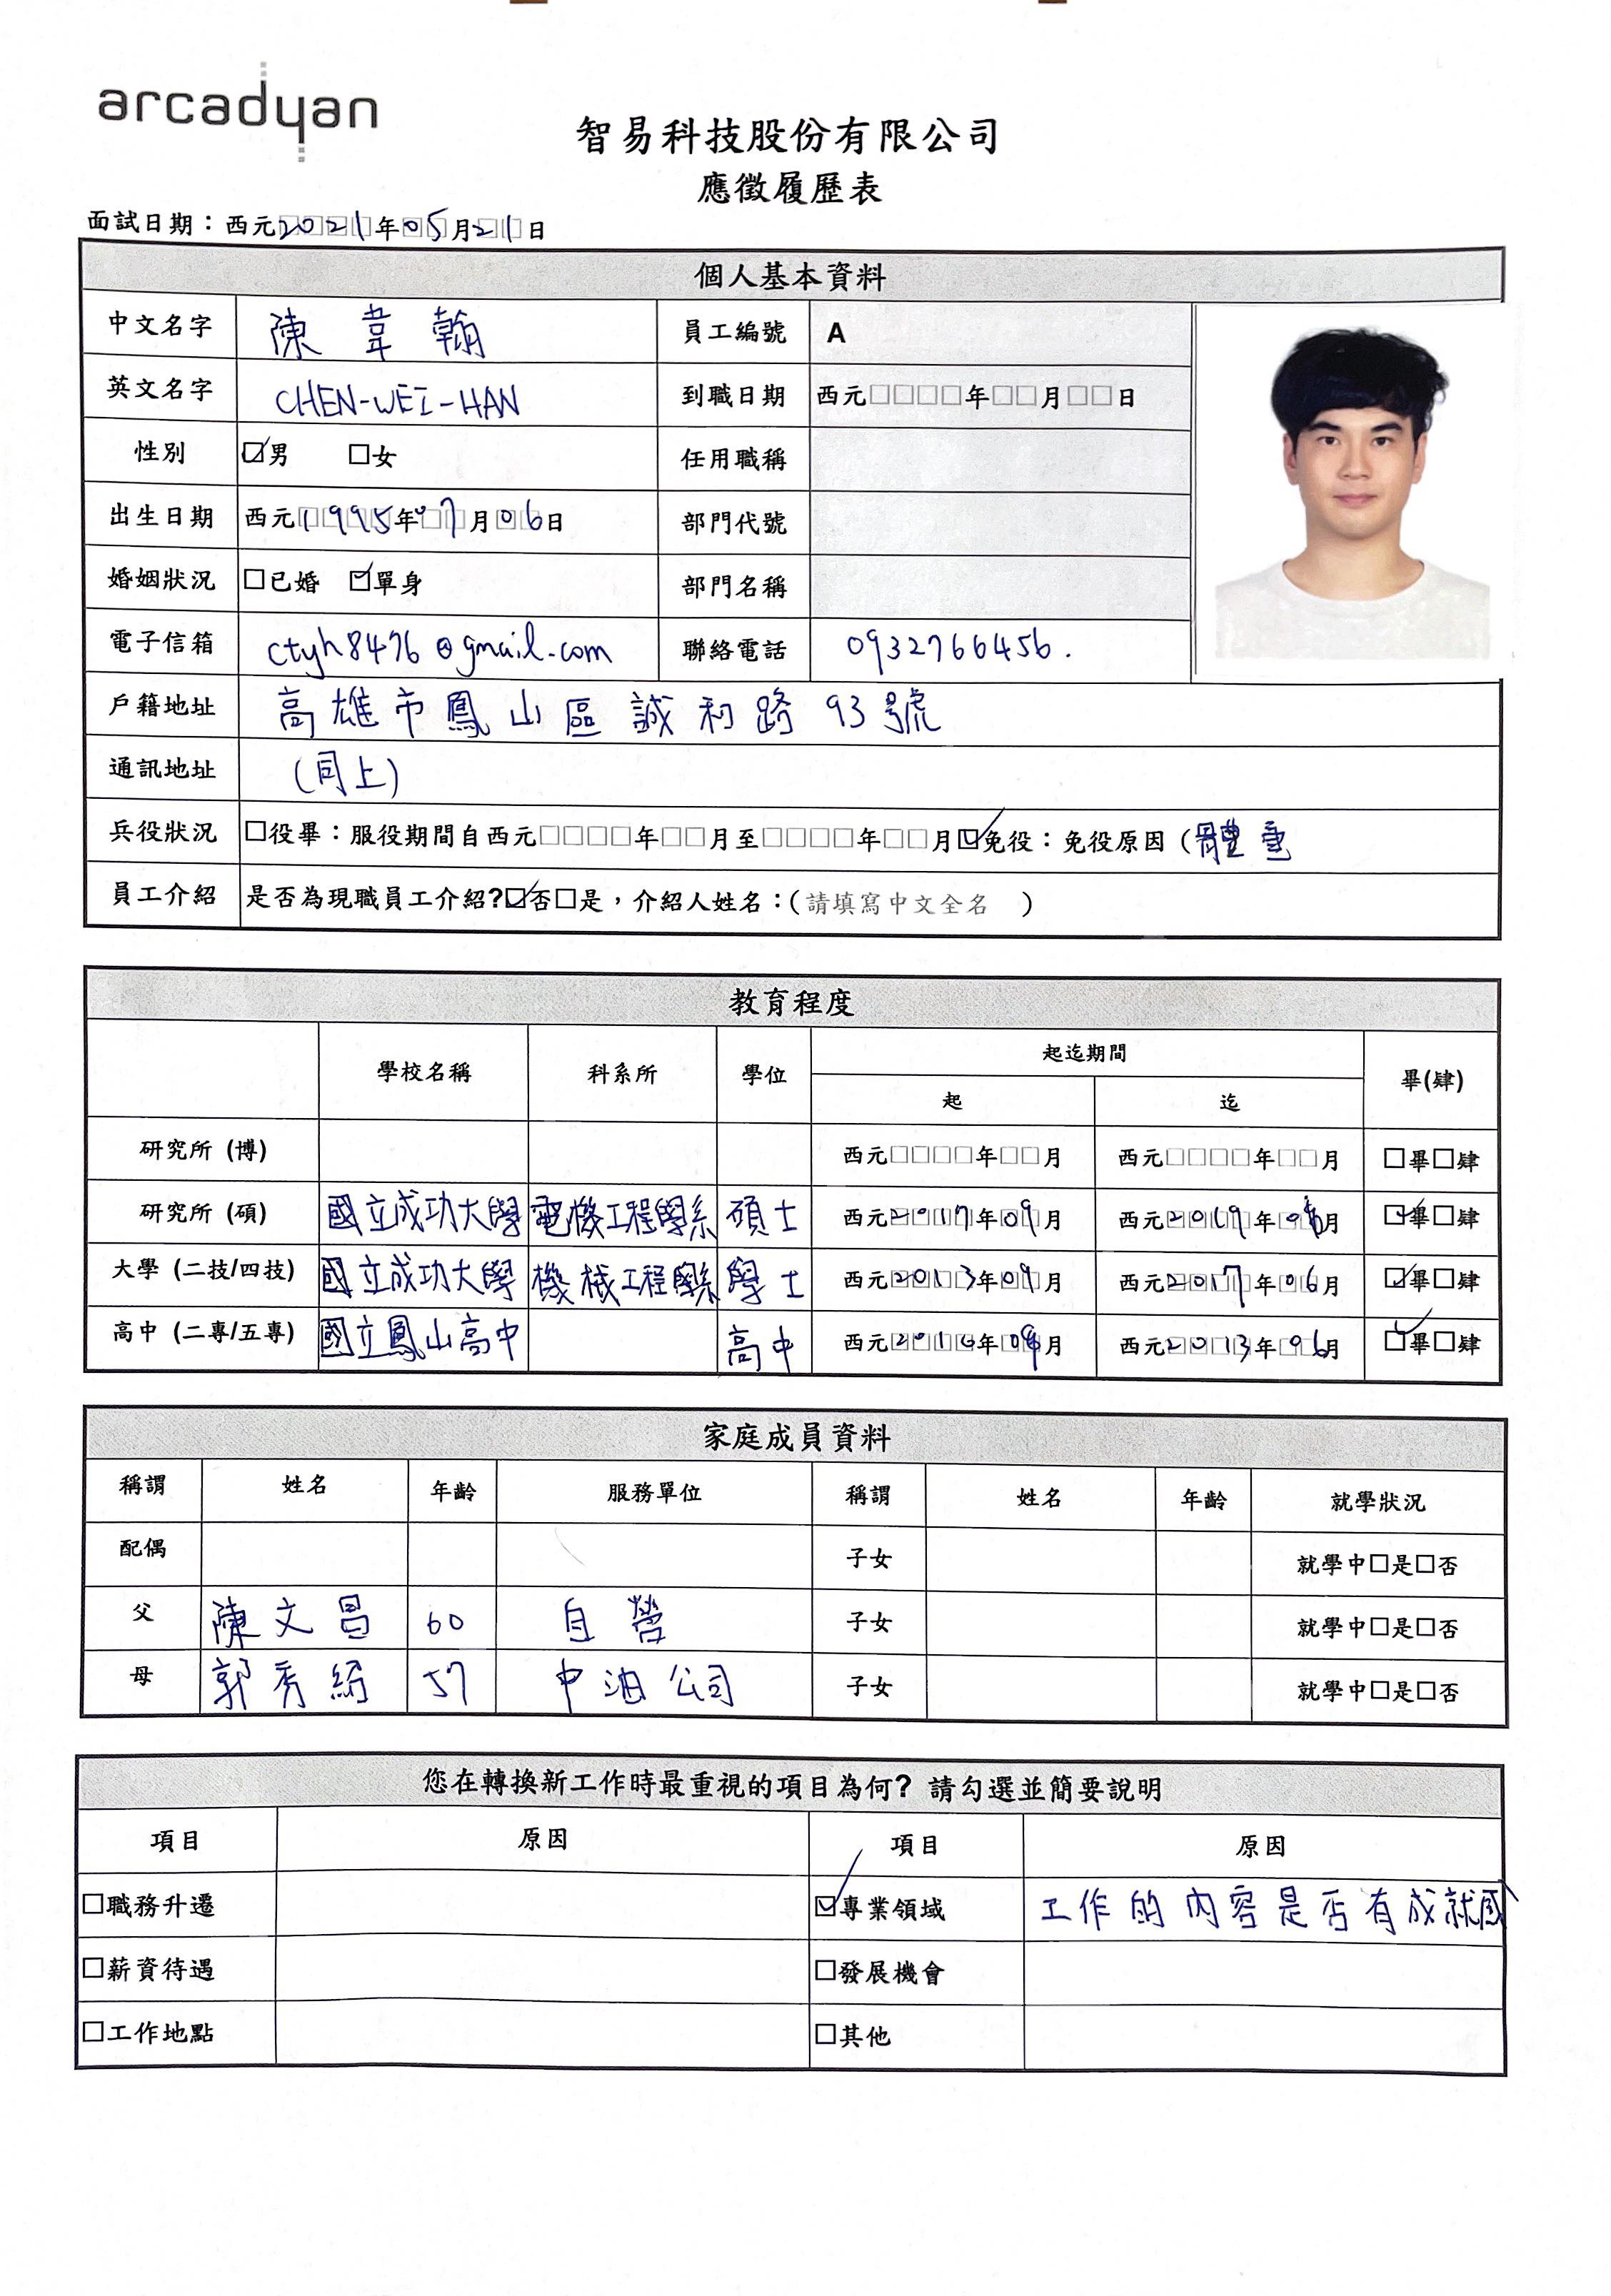 arcadyan
智易科技股份有限公司
應徵履歷表
面試日期：西元2021年05月21日
個人基本資料
中文名字 陳韋翰 員工編號 A
英文名字 CHEN-WEI-HAN 到職日期 西元□□□□年□□月□□日
性別 ☑男 □女 任用職稱
出生日期 西元1995年07月06日 部門代號
婚姻狀況 □已婚 ☑單身 部門名稱
電子信箱 ctyh8476@gmail.com 聯絡電話 0932766456.
戶籍地址 高雄市鳳山區誠和路93號
通訊地址 (同上)
兵役狀況 □役畢：服役期間自西元□□□□年□□月至□□□□年□□月☑免役：免役原因 (體重
員工介紹 是否為現職員工介紹?☑否□是，介紹人姓名：(請填寫中文全名 )
教育程度
學校名稱 科系所 學位 起迄期間 畢(肄)
起 迄
研究所 (博) 西元□□□□年□□月 西元□□□□年□□月 □畢□肄
研究所 (碩) 國立成功大學 電機工程學系 碩士 西元2017年09月 西元2019年月 ☑畢□肄
大學 (二技/四技) 國立成功大學 機械工程學系 學士 西元2013年09月 西元2017年06月 ☑畢□肄
高中 (二專/五專) 國立鳳山高中 高中 西元2010年09月 西元2013年06月 ☑畢□肄
家庭成員資料
稱謂 姓名 年齡 服務單位 稱謂 姓名 年齡 就學狀況
配偶 子女 就學中□是□否
父 陳文昌 60 自營 子女 就學中□是□否
母 郭秀 57 中油公司 子女 就學中□是□否
您在轉換新工作時最重視的項目為何？請勾選並簡要說明
項目 原因 項目 原因
□職務升遷 ☑專業領域 工作的內容是否有成就感
□薪資待遇 □發展機會
□工作地點 □其他